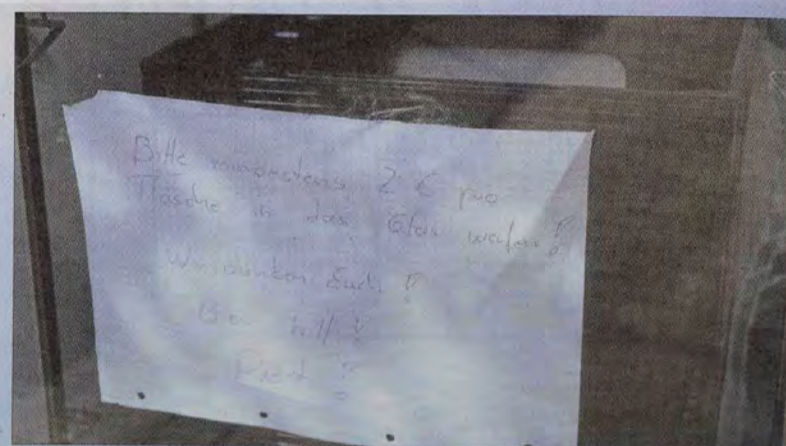 Bitte mindestens 2 € pro
Flasche in das Glas werfen!
Wir danken Euch!
Bier hilft!
Prost!